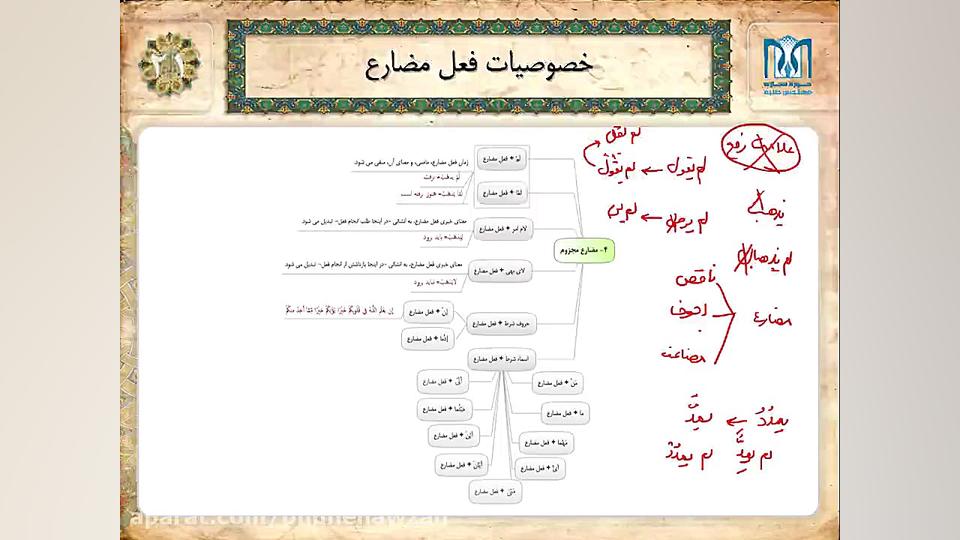 خصوصیات فعل مضارع
۴- مضارع مجزوم
لَمْ + فعل مضارع
زمان فعل مضارع، ماضی، و معنای آن، منفی می شود.
لَمْ یَذهَبْ= نرفت
لمّا + فعل مضارع
لَمّا یَذهَبْ= هنوز نرفته است
لام امر + فعل مضارع
معنای خبری فعل مضارع، به انشائی -در اینجا طلب انجام فعل- تبدیل می شود.
لِیَذهَبْ= باید برود
لای نهی + فعل مضارع
معنای خبری فعل مضارع، به انشائی -در اینجا بازداشتن از انجام فعل- تبدیل می شود.
لایَذهَبْ= نباید برود
حروف شرط + فعل مضارع
إنْ + فعل مضارع
إِن يَعْلَمِ اللَّهُ فِي قُلُوبِكُمْ خَيْرًا يُؤْتِكُمْ خَيْرًا مِّمَّا أُخِذَ مِنكُمْ
إذما + فعل مضارع
اسماء شرط + فعل مضارع
مَنْ + فعل مضارع
ما + فعل مضارع
مَهْما + فعل مضارع
أیّ + فعل مضارع
مَتَی + فعل مضارع
أیّانَ + فعل مضارع
أینَ + فعل مضارع
حَیثُما + فعل مضارع
أنَّی + فعل مضارع
علامت رفع
لم یقل
لم یقول ← لم یقُوْلْ
یذهب
لم یذهبا
مضارع
ناقص
اجوف
مضاعف
یمدُدُ ← یمدُّ